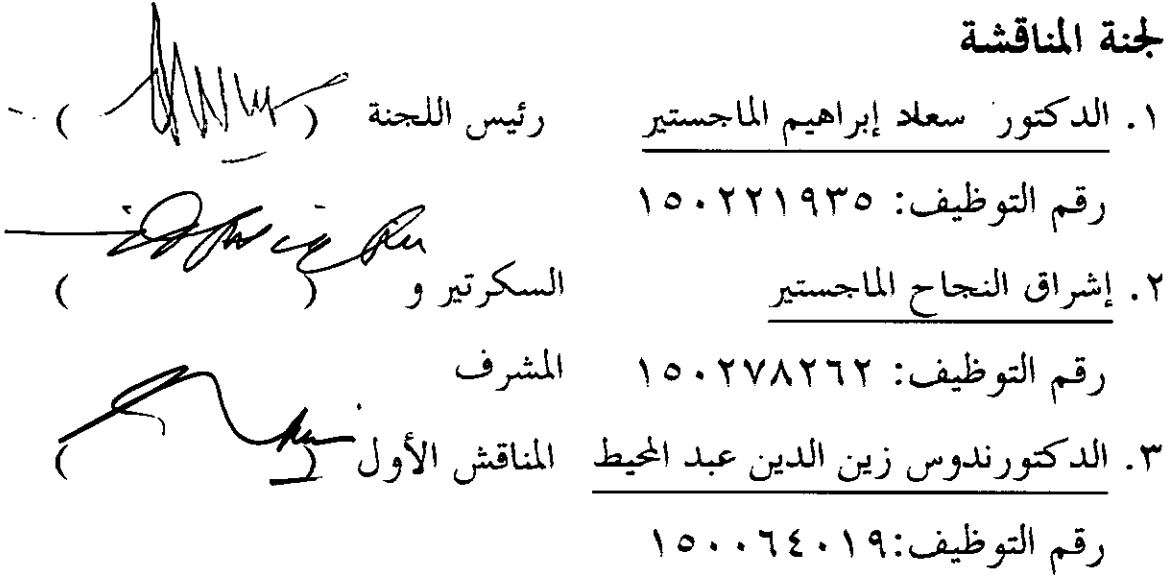 لجنة المناقشة
١. الدكتور سعاد إبراهيم الماجستير رئيس اللجنة ( )
رقم التوظيف: ١٥٠٢٢١٩٣٥
٢. إشراق النجاح الماجستير السكرتير و ( )
رقم التوظيف: ١٥٠٢٧٨٢٦٢ المشرف
٣. الدكتورندوس زين الدين عبد المحيط المناقش الأول ( )
رقم التوظيف:١٥٠٠٦٤٠١٩